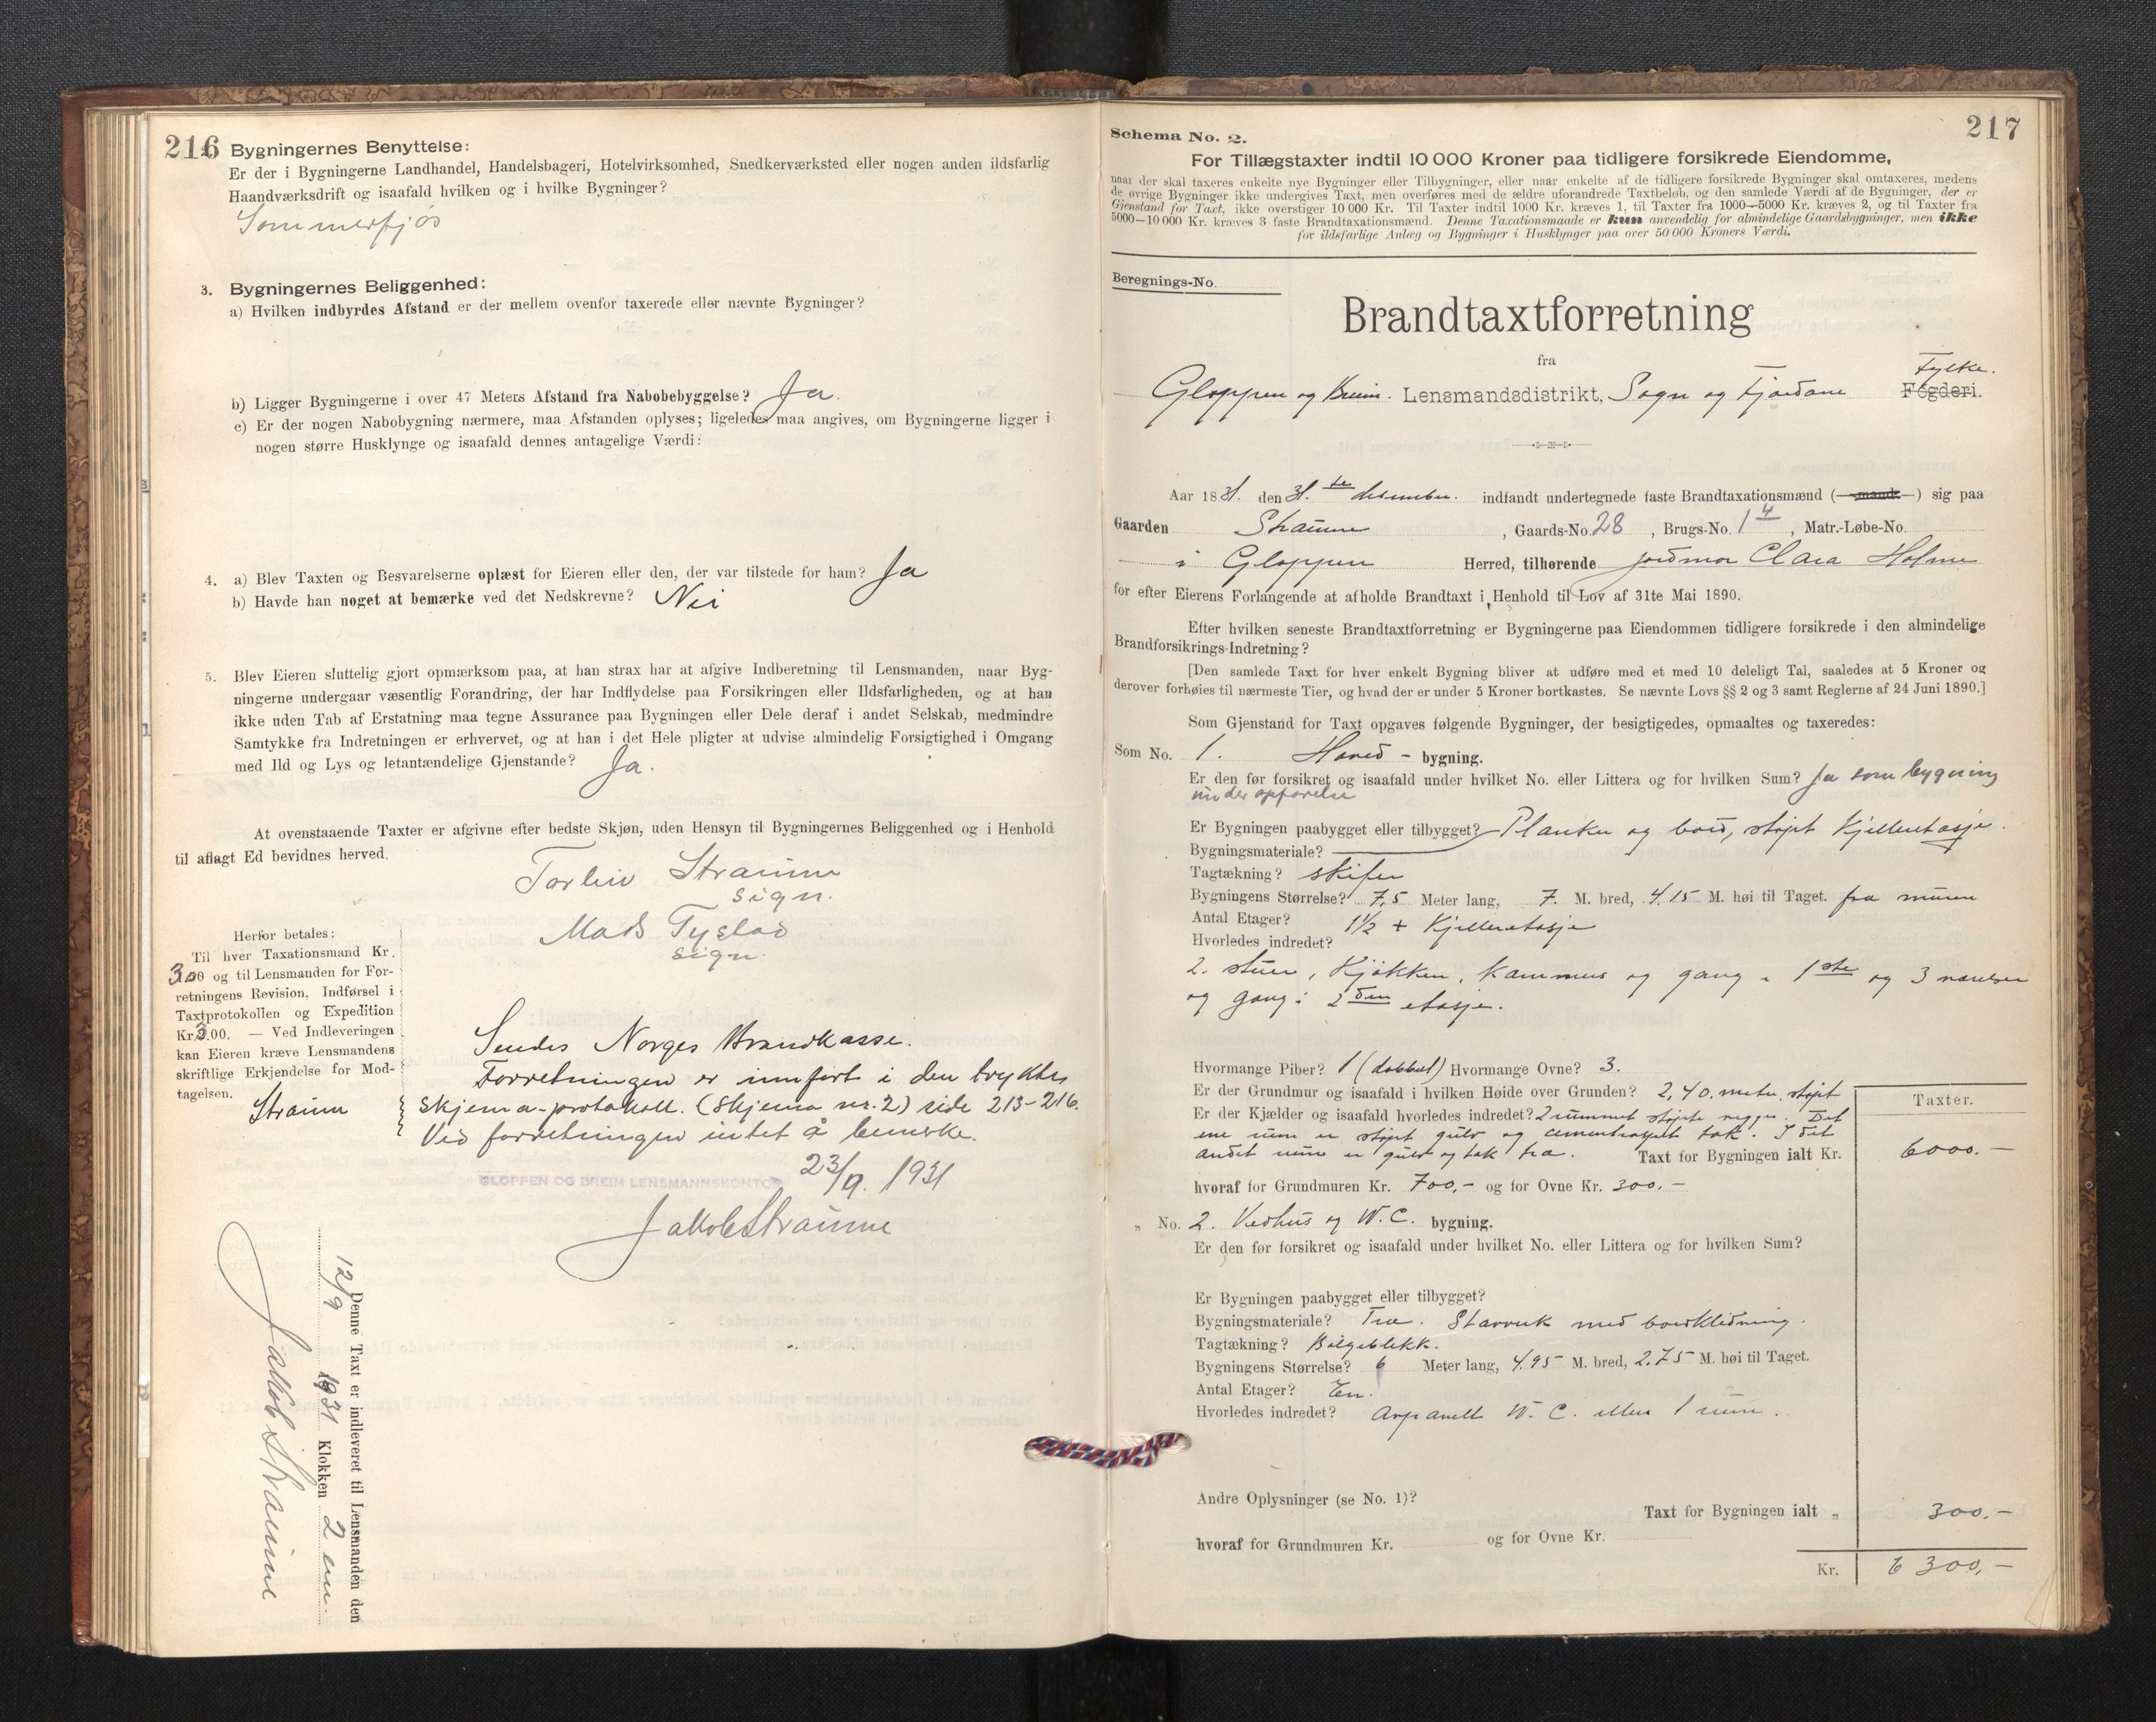 216
Bygningernes Benyttelse:
Er der i Bygningerne Landhandel, Handelsbageri, Hotelvirksomhed, Snedkerværksted eller nogen anden ildsfarlig
Haandværksdrift og isaafald hvilken og i hvilke Bygninger?
Sommerfjøs
3. Bygningernes Beliggenhed:
a) Hvilken indbyrdes Afstand er der mellem ovenfor taxerede eller nævnte Bygninger?
b) Ligger Bygningerne i over 47 Meters Afstand fra Nabobebyggelse? Ja.
c) Er der nogen Nabobygning nærmere, maa Afstanden oplyses; ligeledes maa angives, om Bygningerne ligger i
nogen større Husklynge og isaafald dennes antagelige Værdi:
4. a) Blev Taxten og Besvarelserne oplæst for Eieren eller den, der var tilstede for ham? Ja
b) Havde han noget at bemærke ved det Nedskrevne? Nei
5. Blev Eieren sluttelig gjort opmærksom paa, at han strax har at afgive Indberetning til Lensmanden, naar Byg-
ningerne undergaar væsentlig Forandring, der har Indflydelse paa Forsikringen eller Ildsfarligheden, og at han
ikke uden Tab af Erstatning maa tegne Assurance paa Bygningen eller Dele deraf i andet Selskab, medmindre
Samtykke fra Indretningen er erhvervet, og at han i det Hele pligter at udvise almindelig Forsigtighed i Omgang
med Ild og Lys og letantændelige Gjenstande? Ja.
At ovenstaaende Taxter er afgivne efter bedste Skjøn, uden Hensyn til Bygningernes Beliggenhed og i Henhold
til aflagt Ed bevidnes herved.
Torleiv Straume
sign.
Mads Tystad
sign.
Herfor betales:
Til hver Taxationsmand Kr.
3.00 og til Lensmanden for For-
retningens Revision, Indførsel i
Taxtprotokollen og Expedition
Kr. 3.00. — Ved Indleveringen
kan Eieren kræve Lensmandens
skriftlige Erkjendelse for Mod-
tagelsen.
Straume
Sendes Norges Brandkasse.
Forretningen er innført i den trykte
skjema-protokoll. (Skjema nr. 2) side 213-216.
Ved forretningen intet å bemerke.
23/9. 1931
GLOPPEN OG BREIM LENSMANNSKONTOR
Jakob Straume
Denne Taxt er indleveret til Lensmanden den
12/9 1931 Klokken 2 em.
Jakob Straume
217
Schema No. 2.
For Tillægstaxter indtil 10 000 Kroner paa tidligere forsikrede Eiendomme,
naar der skal taxeres enkelte nye Bygninger eller Tilbygninger, eller naar enkelte af de tidligere forsikrede Bygninger skal omtaxeres, medens
de øvrige Bygninger ikke undergives Taxt, men overføres med de ældre uforandrede Taxtbeløb, og den samlede Værdi af de Bygninger, der er
Gjenstand for Taxt, ikke overstiger 10 000 Kr. Til Taxter indtil 1000 Kr. kræves 1, til Taxter fra 1000—5000 Kr. kræves 2, og til Taxter fra
5000—10 000 Kr. kræves 3 faste Brandtaxationsmænd. Denne Taxationsmaade er kun anvendelig for almindelige Gaardsbygninger, men ikke
for ildsfarlige Anlæg og Bygninger i Husklynger paa over 50 000 Kroners Værdi.
Beregnings-No.
Brandtaxtforretning
fra
Fylke.
Gloppen og Breim. Lensmandsdistrikt, Sogn og Fjordane Fogderi.
Aar 1831. den 31.te desember. indfandt undertegnede faste Brandtaxationsmænd (mand) sig paa
Gaarden Straume, Gaards-No. 28, Brugs-No. 1 4, Matr.-Løbe-No.
i Gloppen Herred, tilhørende jordmor Clara Holme
for efter Eierens Forlangende at afholde Brandtaxt i Henhold til Lov af 31te Mai 1890.
Efter hvilken seneste Brandtaxtforretning er Bygningerne paa Eiendommen tidligere forsikrede i den almindelige
Brandforsikrings-Indretning?
[Den samlede Taxt for hver enkelt Bygning bliver at udføre med et med 10 deleligt Tal, saaledes at 5 Kroner og
derover forhøies til nærmeste Tier, og hvad der er under 5 Kroner bortkastes. Se nævnte Lovs §§ 2 og 3 samt Reglerne af 24 Juni 1890.]
Som Gjenstand for Taxt opgaves følgende Bygninger, der besigtigedes, opmaaltes og taxeredes:
Som No. 1. Hoved - bygning.
Er den før forsikret og isaafald under hvilket No. eller Littera og for hvilken Sum? Ja som bygning
under opførelse
Er Bygningen paabygget eller tilbygget? Planker og bord, støpt Kjelleretasje.
Bygningsmateriale?
Tagtækning? skifer
Bygningens Størrelse? 7,5 Meter lang, 7. M. bred, 4.15 M. høi til Taget. fra muren
Antal Etager? 1½ + Kjelleretasje
Hvorledes indredet?
2. stuer, Kjøkken, kammers og gang i 1ste og 3 værelser
og gang i 2den etasje.
Hvormange Piber? 1 (dobbel) Hvormange Ovne? 3.
Er der Grundmur og isaafald i hvilken Høide over Grunden? 2,40. meter støpt
Er der Kjælder og isaafald hvorledes indredet? 2 rummet støpte vegger. Det
ene rum er støpt gulv og cementpusset tak. I det
andet rum er gulv og tak tre. Taxt for Bygningen ialt Kr.
Taxter.
6000.—
hvoraf for Grundmuren Kr. 700,- og for Ovne Kr. 300.-
„ No. 2. Vedhus og W.C. bygning.
Er den før forsikret og isaafald under hvilket No. eller Littera og for hvilken Sum?
Er Bygningen paabygget eller tilbygget?
Bygningsmateriale? Tre. Stavverk med bordkledning.
Tagtækning? Bølgeblikk.
Bygningens Størrelse? 6 Meter lang, 4.95 M. bred, 2.75 M. høi til Taget.
Antal Etager? En.
Hvorledes indredet? Avpanelt W. C. ellers 1 rum.
Andre Oplysninger (se No. 1)?
Taxt for Bygningen ialt „ 300.—
hvoraf for Grundmuren Kr. og for Ovne Kr.
Kr. 6 300,—